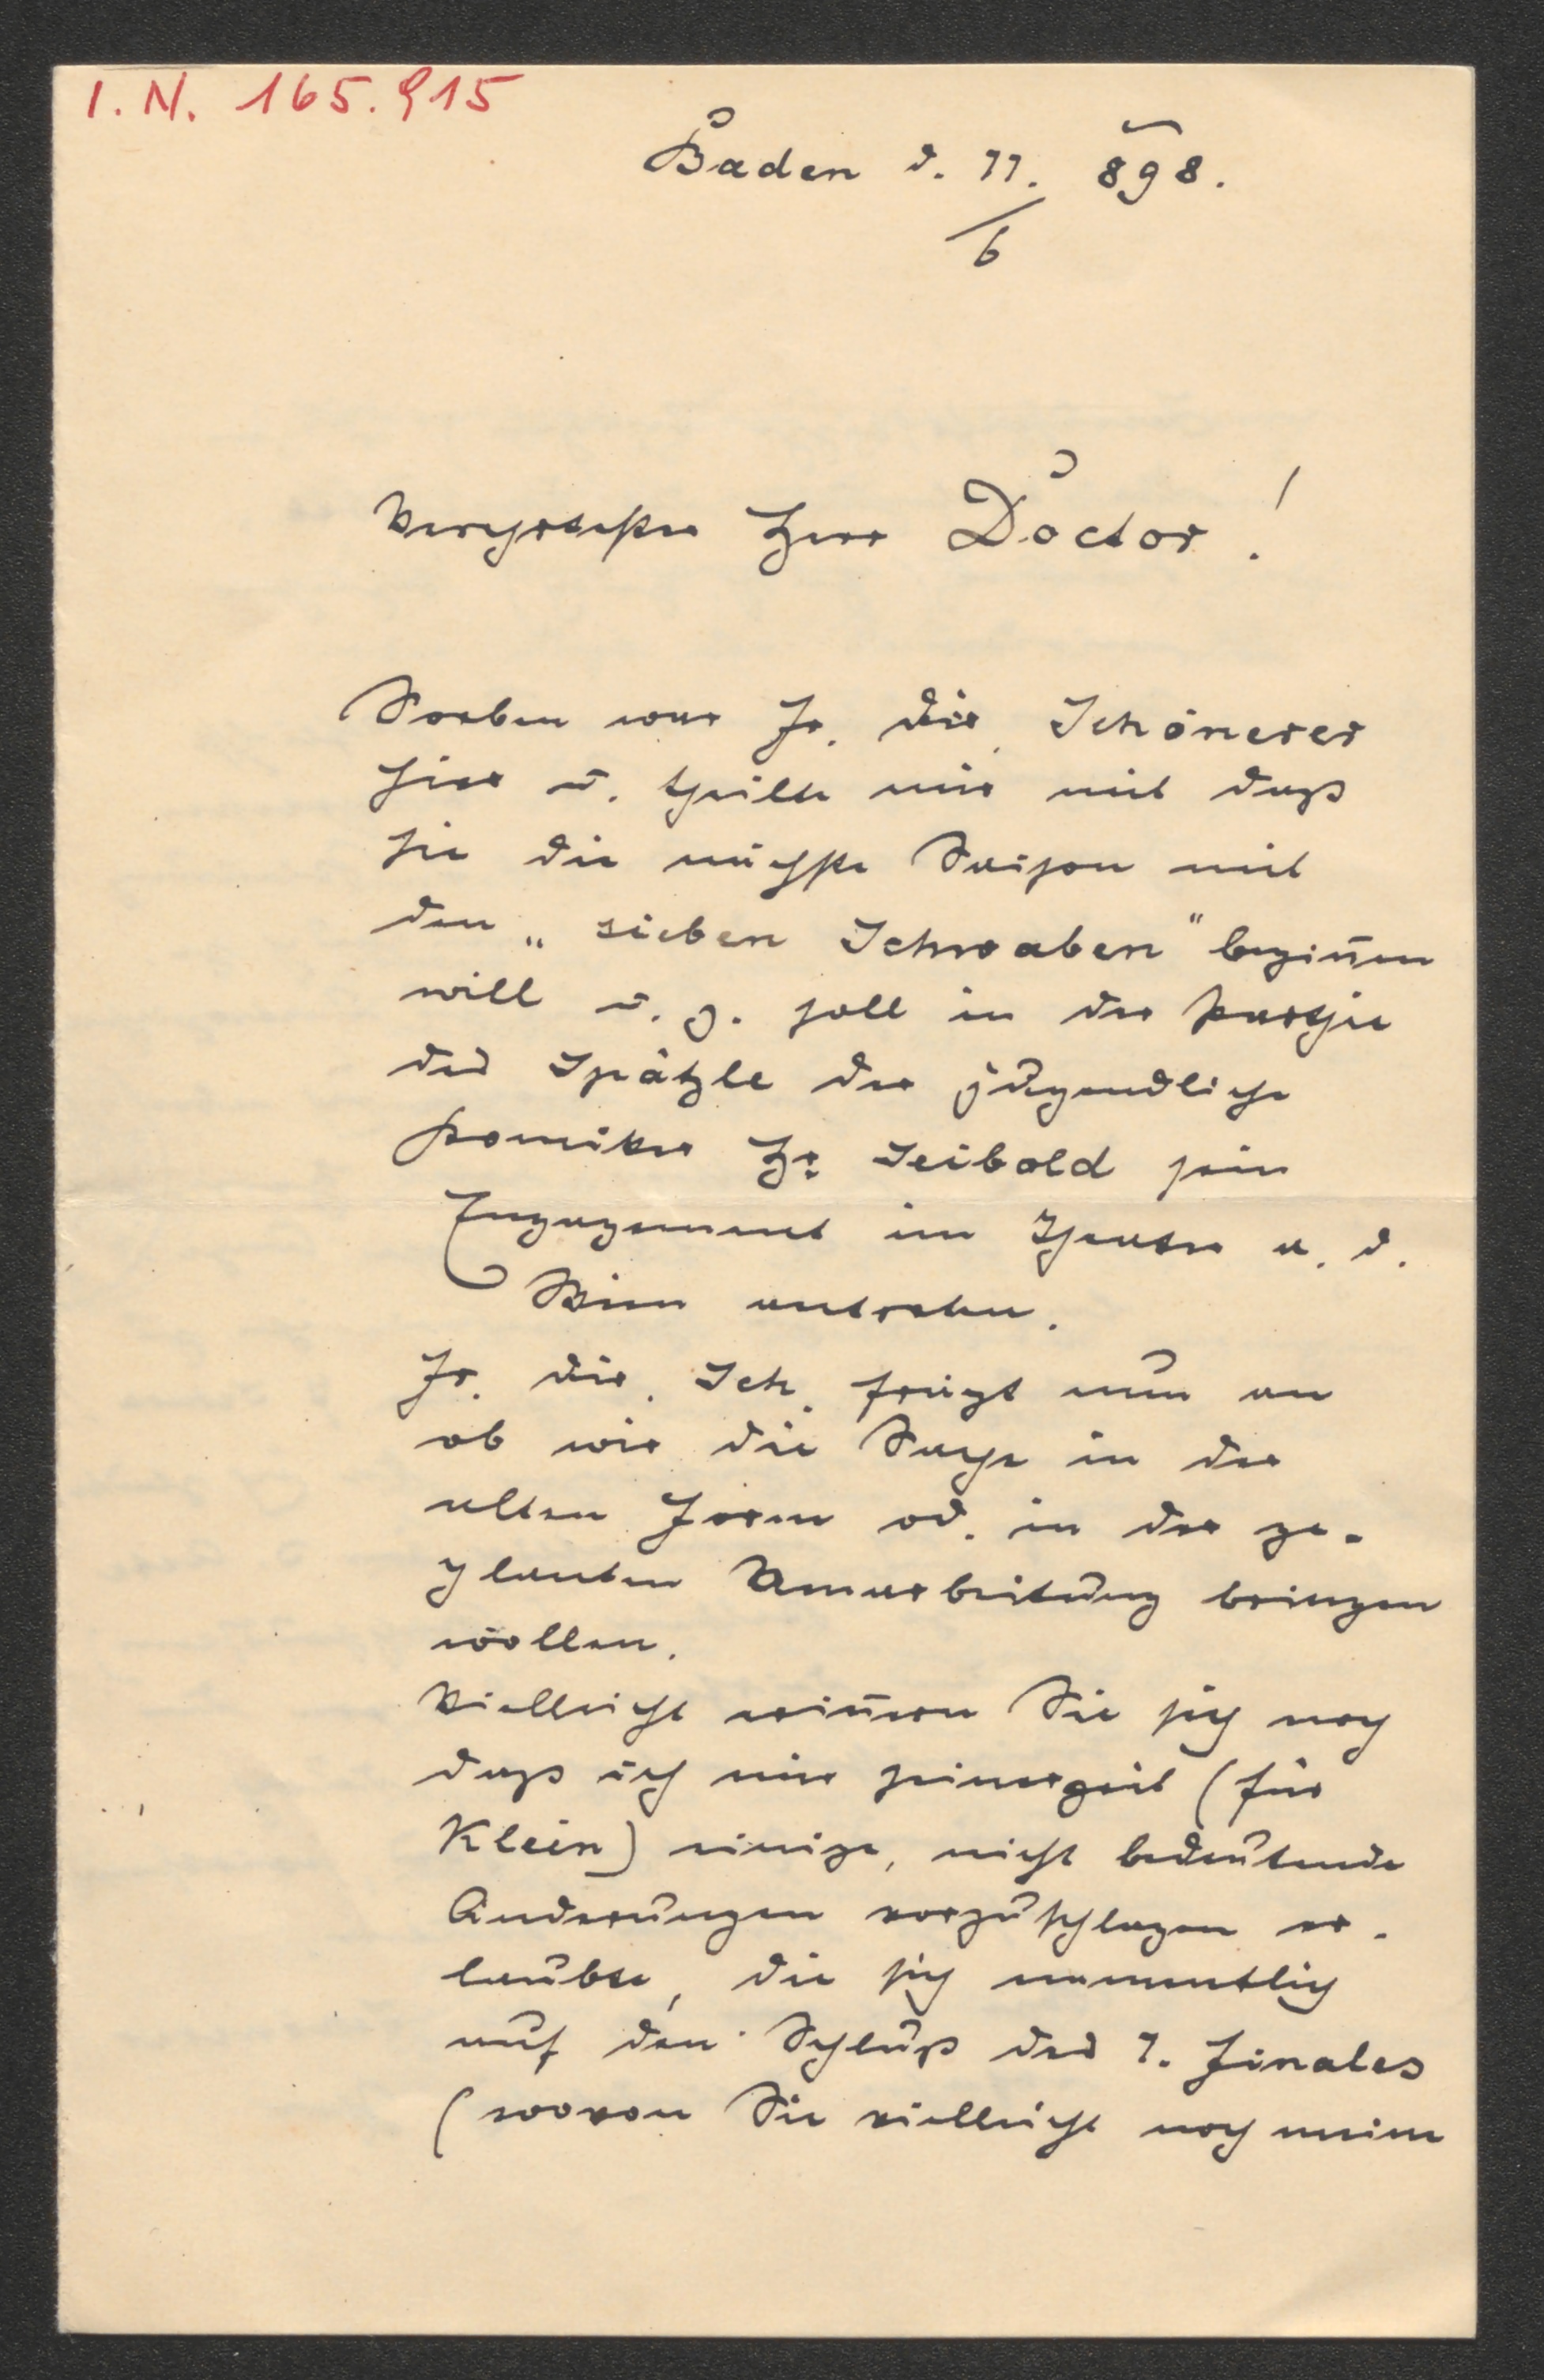 I. N. 165.915
Baden d. 11. 898.
6
Verehrtester Herr Doctor!
Soeben war Fr. Dir. Schönerer
hier u. theilte mir mit daß
sie die nächste Saison mit
den „sieben Schwaben" begiñen
will u. z. soll in der Parthie
des Spätzle der jugendliche
Komiker Hr. Seibold sein
Engagement im Theater a. d.
Wien antreten.
Fr. Dir. Sch. frägt nun an
ob wir die Sache in der
alten Form od. in der ge-
planten Umarbeitung bringen
wollen.
Vielleicht eriñern Sie sich noch
daß ich mir seinerzeit (für
Klein) einige, nicht bedeutende
Änderungen vorzuschlagen er-
laubte, die sich namentlich
auf den Schluß des 1. Finales
(wovon Sie vielleicht noch meine